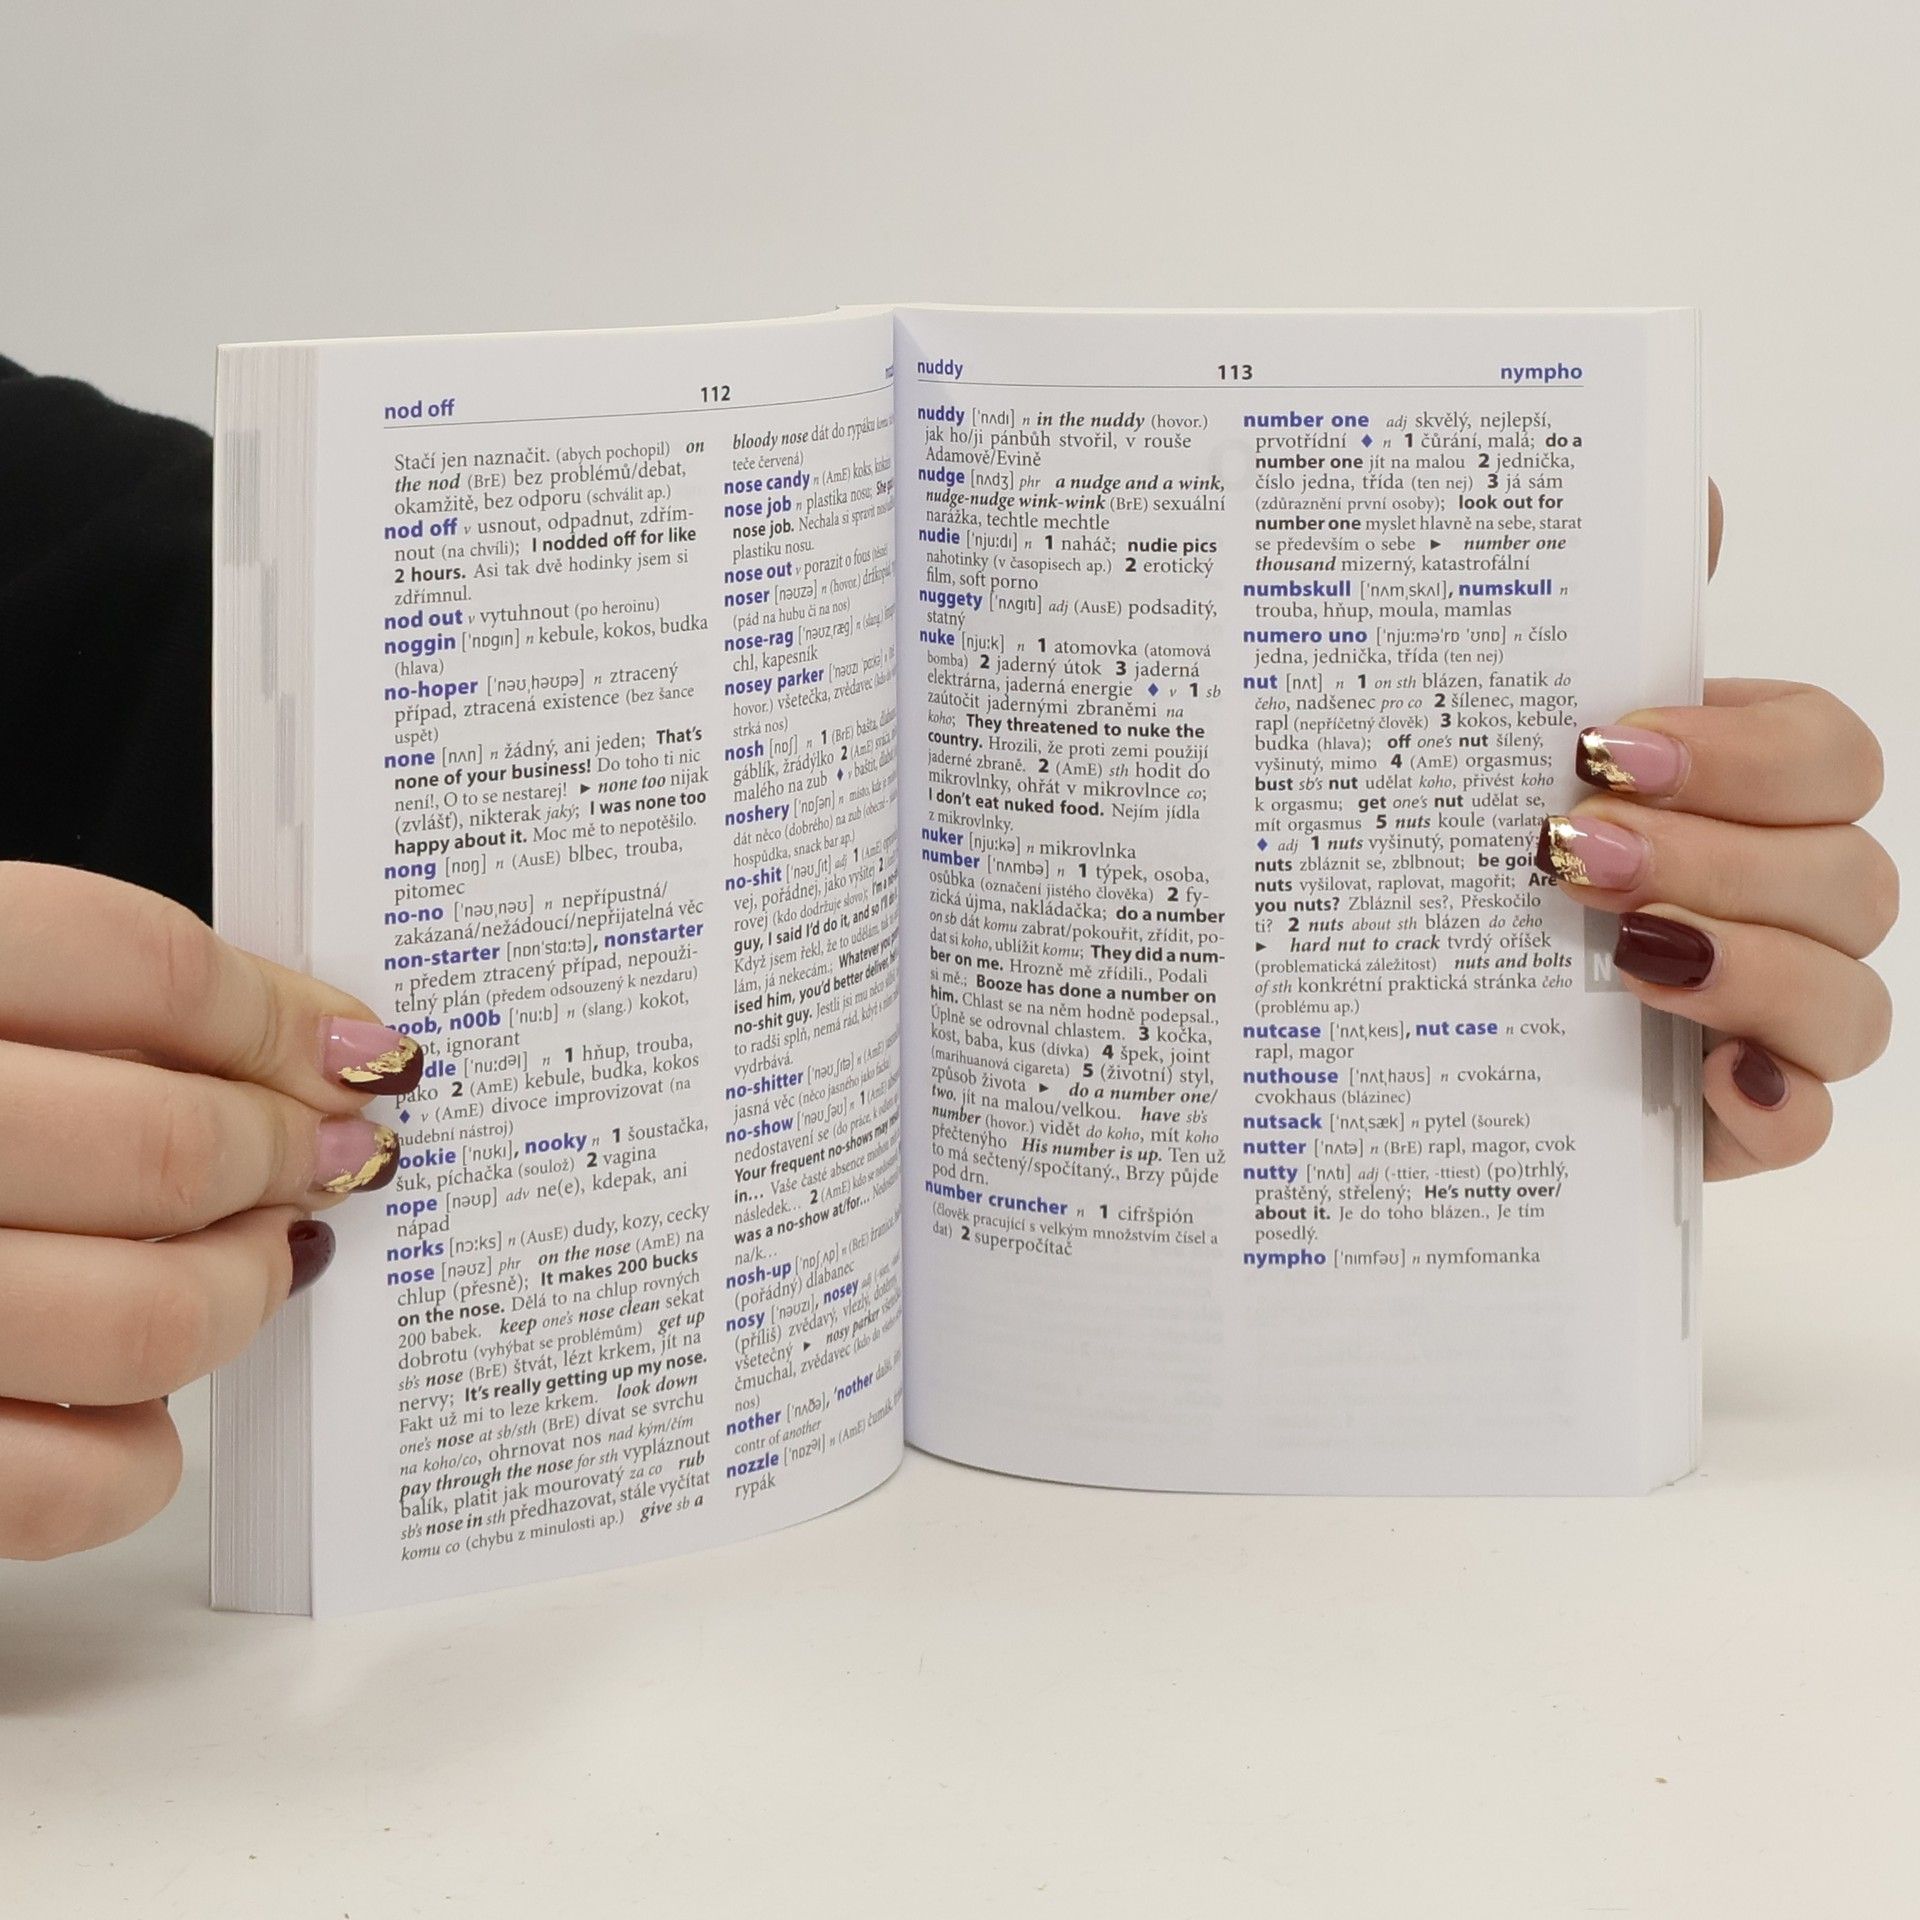 nod off
112
Stačí jen naznačit. (abych pochopil) on
the nod (BrE) bez problémů/debat,
okamžitě, bez odporu (schválit ap.)
nod off v usnout, odpadnut, zdřím-
nout (na chvíli); I nodded off for like
2 hours. Asi tak dvě hodinky jsem si
zdřímnul.
nod out v vytuhnout (po heroinu)
noggin ['nɒgɪn] n kebule, kokos, budka
(hlava)
no-hoper ['nəʊˌhəʊpə] n ztracený
případ, ztracená existence (bez šance
uspět)
none [nʌn] n žádný, ani jeden; That's
none of your business! Do toho ti nic
není!, O to se nestarej! ► none too nijak
(zvlášť), nikterak jaký; I was none too
happy about it. Moc mě to nepotěšilo.
nong [nɒŋ] n (AusE) blbec, trouba,
pitomec
no-no ['nəʊˌnəʊ] n nepřípustná/
zakázaná/nežádoucí/nepřijatelná věc
non-starter [nɒn'stɑ:tə], nonstarter
n předem ztracený případ, nepouži-
telný plán (předem odsouzený k nezdaru)
noob, n00b ['nu:b] n (slang.) kokot,
ignorant
['nu:dəl] n 1 hňup, trouba,
pako 2 (AmE) kebule, budka, kokos
♦ v (AmE) divoce improvizovat (na
hudební nástroj)
['nʊkɪ], nooky n 1 šoustačka,
šuk, píchačka (soulož) 2 vagina
nope [nəʊp] adv ne(e), kdepak, ani
nápad
norks [nɔ:ks] n (AusE) dudy, kozy, cecky
nose [nəʊz] phr on the nose (AmE) na
chlup (přesně); It makes 200 bucks
on the nose. Dělá to na chlup rovných
200 babek. keep one's nose clean sekat
dobrotu (vyhýbat se problémům) get up
sb's nose (BrE) štvát, lézt krkem, jít na
nervy; It's really getting up my nose.
Fakt už mi to leze krkem. look down
one's nose at sb/sth (BrE) dívat se svrchu
na koho/co, ohrnovat nos nad kým/čím
pay through the nose for sth vypláznout
balík, platit jak mourovatý za co rub
sb's nose in sth předhazovat, stále vyčítat
komu co (chybu z minulosti ap.) give sb a
bloody nose dát do rypáku
teče červená)
nose candy n (AmE) koks,
nose job n plastika nosu; She
nose job. Nechala si spravit nos
plastiku nosu.
nose out v porazit o fous
noser [nəʊzə] n (hovor.)
(pád na hubu či na nos)
nose-rag ['nəʊzˌræg] n (slang.)
chl, kapesník
nosey parker
hovor.) všetečka, zvědavec
strká nos)
nosh [nɒʃ] n 1 (BrE) bašta,
gáblík, žrádýlko 2 (AmE)
malého na zub ♦ v baštit,
noshery ['nɒʃən] n místo, kde je
dát něco (dobrého) na zub
hospůdka, snack bar ap.)
no-shit ['nəʊˌʃɪt] adj 1 (AmE)
vej, pořádnej, jako vyšitej 2
rovej (kdo dodržuje slovo); I'm a
guy, I said I'd do it, and so I'll
Když jsem řekl, že to udělám,
lám, já nekecám.; Whatever you
ised him, you'd better deliver,
no-shit guy. Jestli jsi mu něco
to radši splň, nemá rád, když
vydrbává.
no-shitter ['nəʊˌʃɪtə] n (AmE)
jasná věc (něco jasného jako facka)
no-show ['nəʊˌʃəʊ] n 1 (AmE)
nedostavení se (do práce,
Your frequent no-shows may
in... Vaše časté absence mohou
následek... 2 (AmE) kdo se
was a no-show at/for...
na/k...
nosh-up ['nɒʃˌʌp] n (BrE)
(pořádný) dlabanec
nosy ['nəʊzɪ], nosey adj
(příliš) zvědavý, vlezlý,
všetečný ► nosy parker
čmuchal, zvědavec
nos)
nother ['nʌðə], 'nother další,
contr of another
nozzle ['nɒzəl] n (AmE) čumák,
rypák
nuddy
113
nympho
nuddy ['nʌdɪ] n in the nuddy (hovor.)
jak ho/ji pánbůh stvořil, v rouše
Adamově/Evině
nudge [nʌdʒ] phr a nudge and a wink,
nudge-nudge wink-wink (BrE) sexuální
narážka, techtle mechtle
nudie ['nju:dɪ] n 1 naháč; nudie pics
nahotinky (v časopisech ap.) 2 erotický
film, soft porno
nuggety ['nʌgɪtɪ] adj (AusE) podsaditý,
statný
nuke [nju:k] n 1 atomovka (atomová
bomba) 2 jaderný útok 3 jaderná
elektrárna, jaderná energie ♦ v 1 sb
zaútočit jadernými zbraněmi na
koho; They threatened to nuke the
country. Hrozili, že proti zemi použijí
jaderné zbraně. 2 (AmE) sth hodit do
mikrovlnky, ohřát v mikrovlnce co;
I don't eat nuked food. Nejím jídla
z mikrovlnky.
nuker [nju:kə] n mikrovlnka
number ['nʌmbə] n 1 týpek, osoba,
osůbka (označení jistého člověka) 2 fy-
zická újma, nakládačka; do a number
on sb dát komu zabrat/pokouřit, zřídit, po-
dat si koho, ublížit komu; They did a num-
ber on me. Hrozně mě zřídili., Podali
si mě.; Booze has done a number on
him. Chlast se na něm hodně podepsal.,
Úplně se odrovnal chlastem. 3 kočka,
kost, baba, kus (dívka) 4 špek, joint
(marihuanová cigareta) 5 (životní) styl,
způsob života ► do a number one/
two, jít na malou/velkou. have sb's
number (hovor.) vidět do koho, mít koho
přečtenýho His number is up. Ten už
to má sečtený/spočítaný., Brzy půjde
pod drn.
number cruncher n 1 cifršpión
(člověk pracující s velkým množstvím čísel a
dat) 2 superpočítač
number one adj skvělý, nejlepší,
prvotřídní ♦ n 1 čůrání, malá; do a
number one jít na malou 2 jednička,
číslo jedna, třída (ten nej) 3 já sám
(zdůraznění první osoby); look out for
number one myslet hlavně na sebe, starat
se především o sebe ► number one
thousand mizerný, katastrofální
numbskull ['nʌmˌskʌl], numskull n
trouba, hňup, moula, mamlas
numero uno ['nju:mə'rɒ 'ʊnɒ] n číslo
jedna, jednička, třída (ten nej)
nut [nʌt] n 1 on sth blázen, fanatik do
čeho, nadšenec pro co 2 šílenec, magor,
rapl (nepříčetný člověk) 3 kokos, kebule,
budka (hlava); off one's nut šílený,
vyšinutý, mimo 4 (AmE) orgasmus;
bust sb's nut udělat koho, přivést koho
k orgasmu; get one's nut udělat se,
mít orgasmus 5 nuts koule (varlata
♦ adj 1 nuts vyšinutý, pomatený;
nuts zbláznit se, zblbnout; be
nuts vyšilovat, raplovat, magořit; Are
you nuts? Zbláznil ses?, Přeskočilo
ti? 2 nuts about sth blázen do čeho
► hard nut to crack tvrdý oříšek
(problematická záležitost) nuts and bolts
of sth konkrétní praktická stránka čeho
(problému ap.)
nutcase ['nʌtˌkeɪs], nut case n cvok,
rapl, magor
nuthouse ['nʌtˌhaʊs] n cvokárna,
cvokhaus (blázinec)
nutsack ['nʌtˌsæk] n pytel (šourek)
nutter ['nʌtə] n (BrE) rapl, magor, cvok
nutty ['nʌtɪ] adj (-ttier, -ttiest) (po)trhlý,
praštěný, střelený; He's nutty over/
about it. Je do toho blázen., Je tím
posedlý.
nympho ['nɪmfəʊ] n nymfomanka
N